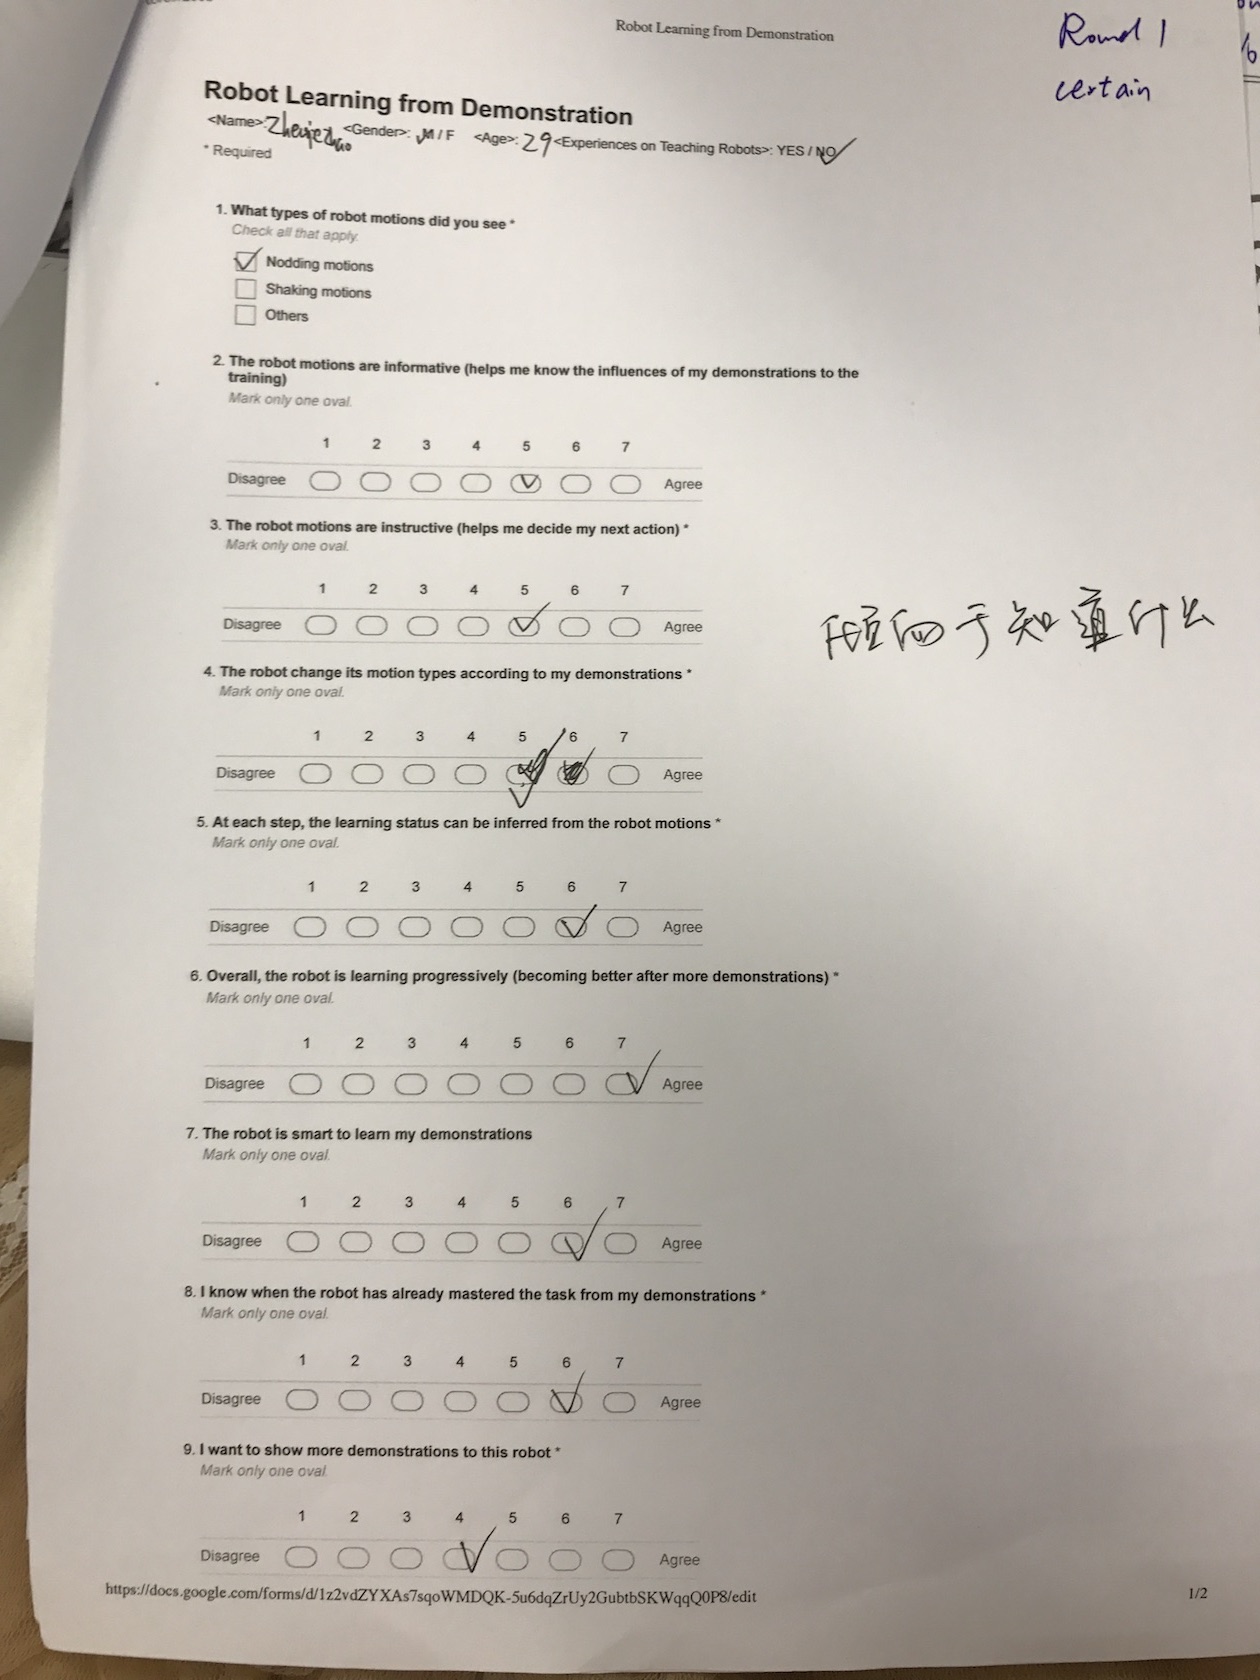 Robot Learning from Demonstration
Round 1
certain
Robot Learning from Demonstration
<Name>: <Gender>: M / F <Age>: 29 <Experiences on Teaching Robots>: YES / NO
* Required
1. What types of robot motions did you see *
Check all that apply.
Nodding motions
Shaking motions
Others
2. The robot motions are informative (helps me know the influences of my demonstrations to the
training)
Mark only one oval.
1 2 3 4 5 6 7
Disagree Agree
3. The robot motions are instructive (helps me decide my next action) *
Mark only one oval.
1 2 3 4 5 6 7
Disagree Agree
倾向于知道什么
4. The robot change its motion types according to my demonstrations *
Mark only one oval.
1 2 3 4 5 6 7
Disagree Agree
5. At each step, the learning status can be inferred from the robot motions *
Mark only one oval.
1 2 3 4 5 6 7
Disagree Agree
6. Overall, the robot is learning progressively (becoming better after more demonstrations) *
Mark only one oval.
1 2 3 4 5 6 7
Disagree Agree
7. The robot is smart to learn my demonstrations
Mark only one oval.
1 2 3 4 5 6 7
Disagree Agree
8. I know when the robot has already mastered the task from my demonstrations *
Mark only one oval.
1 2 3 4 5 6 7
Disagree Agree
9. I want to show more demonstrations to this robot *
Mark only one oval.
1 2 3 4 5 6 7
Disagree Agree
https://docs.google.com/forms/d/1z2vdZYXAs7sqoWMDQK-5u6dqZrUy2GubtbSKWqqQ0P8/edit 1/2